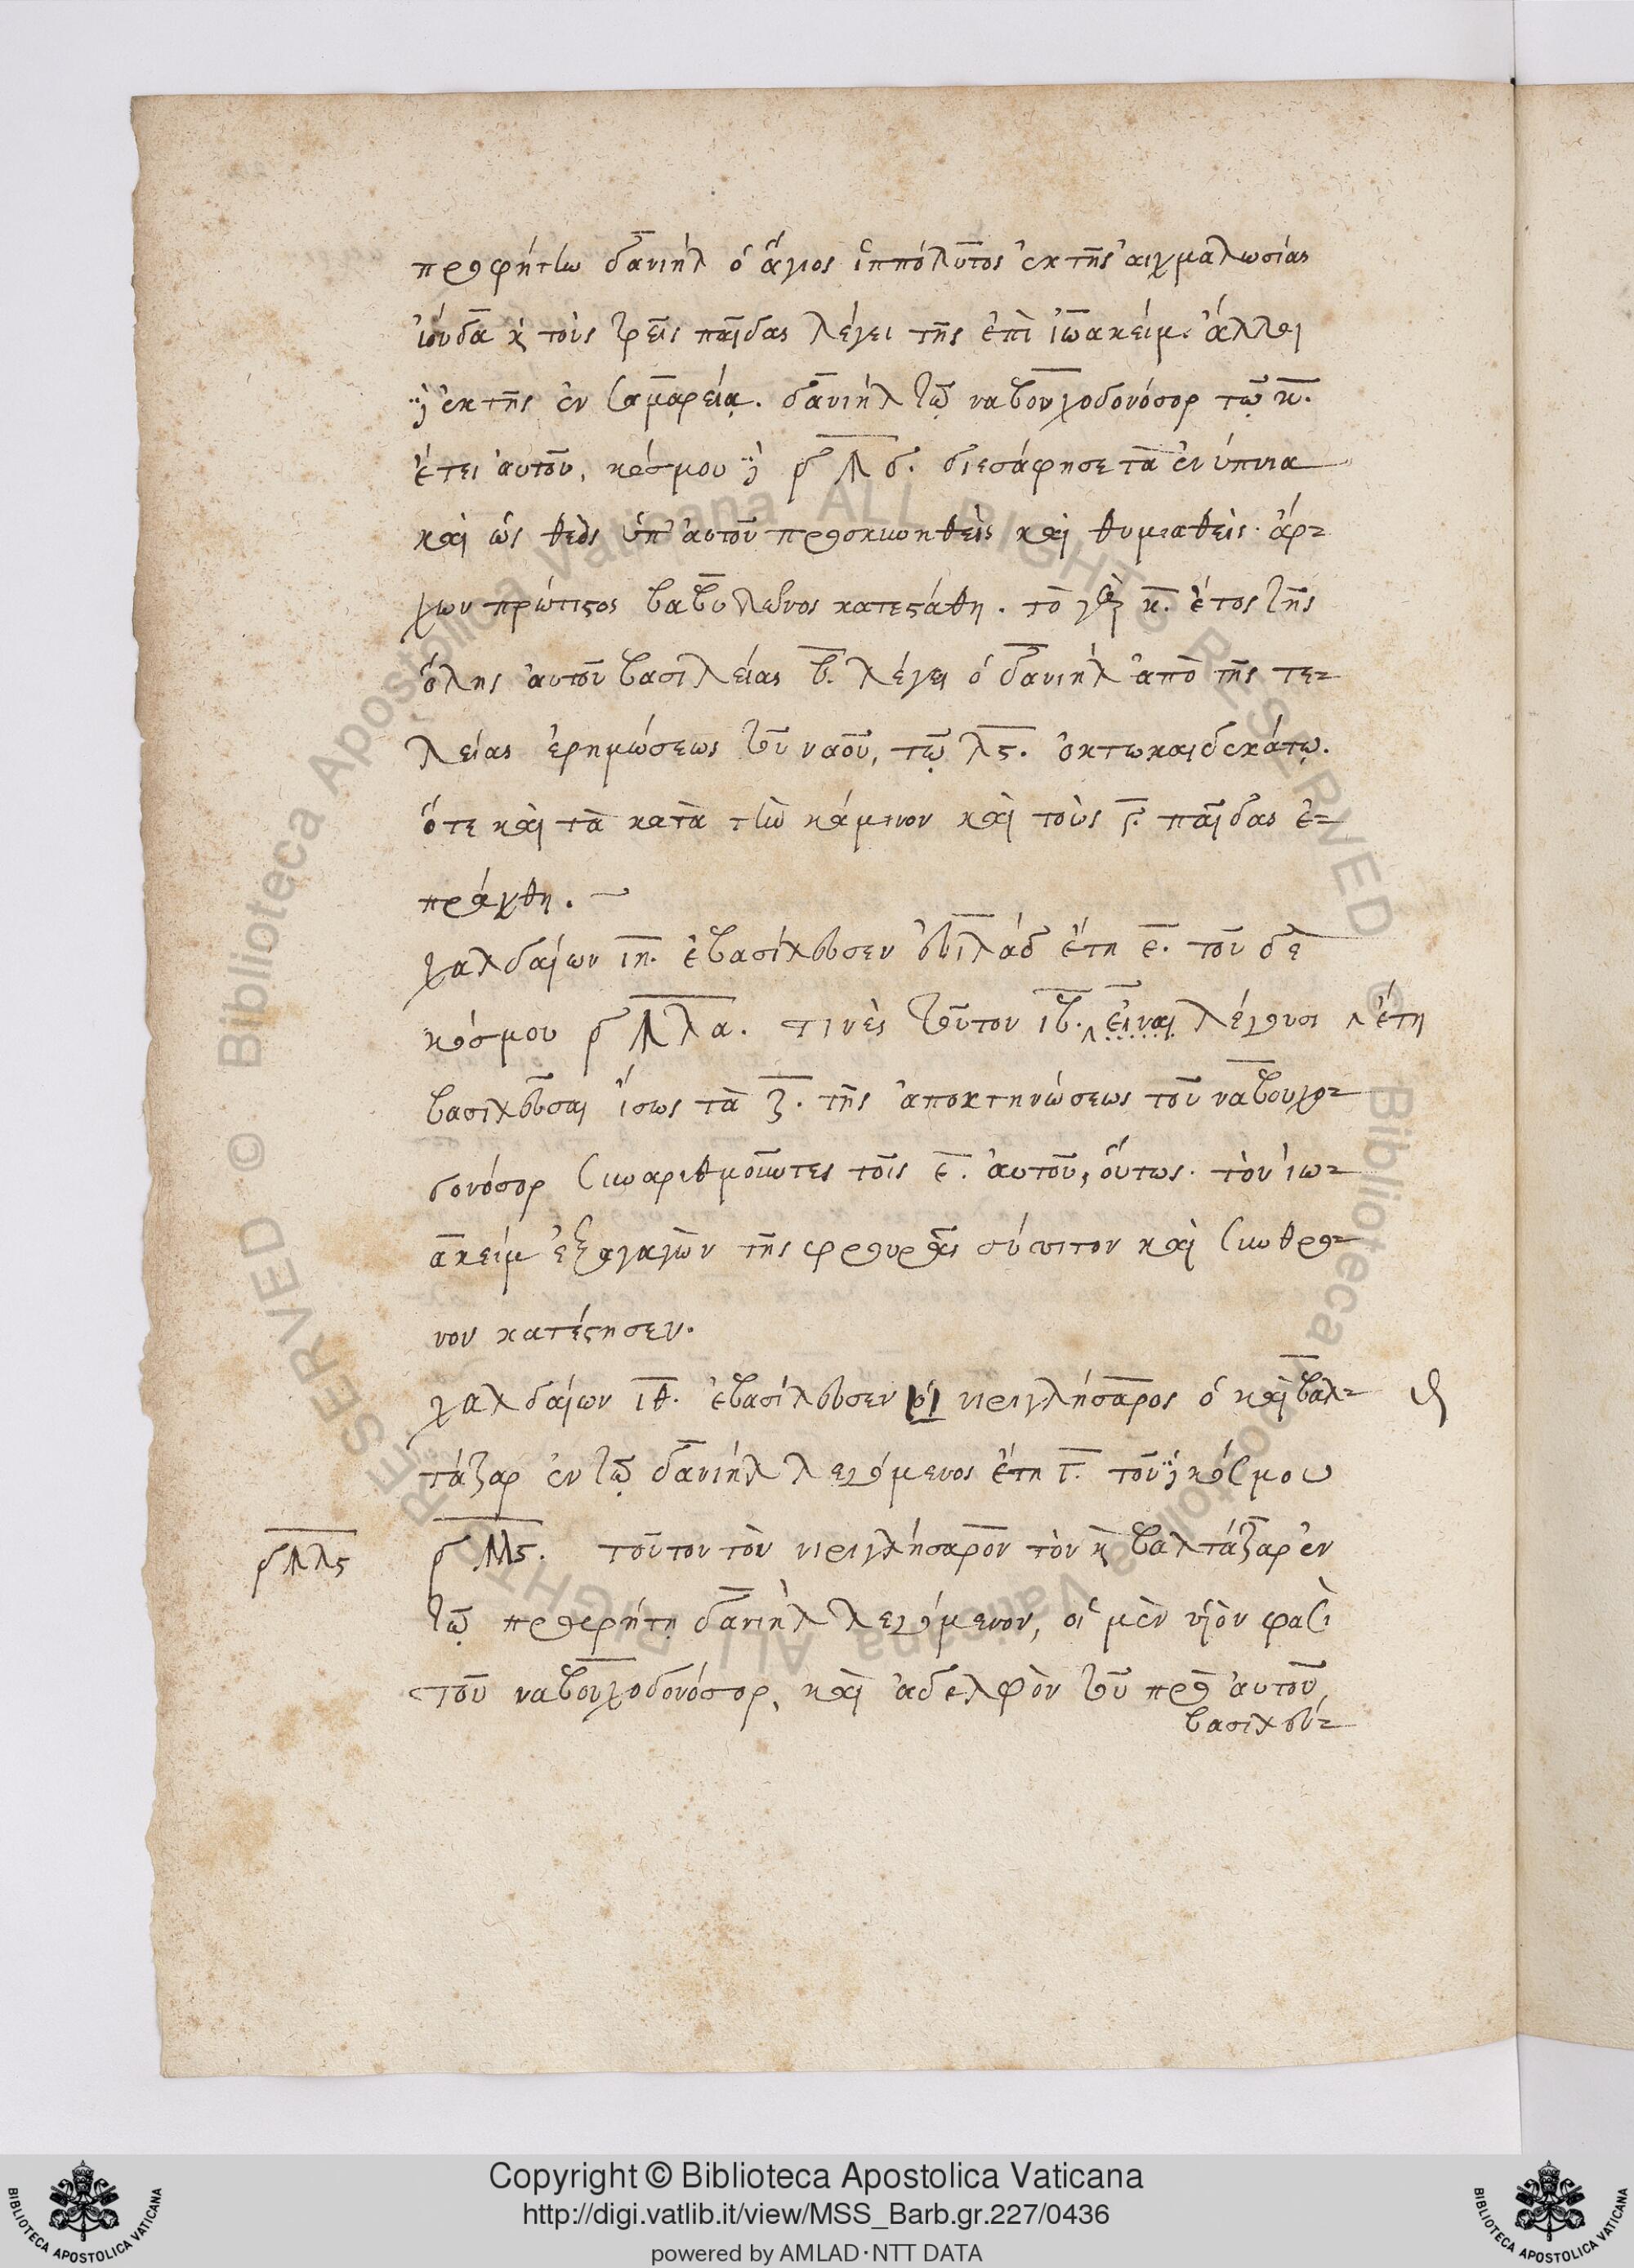 προφήτην δανιὴλ ὁ ἅγιος ἱππόλυτος ἐκ τῆς αἰχμαλωσίας
ἰούδα κ τοὺς τρεῖς παῖδας λέγει τῆς ἐπὶ ἰωακείμ. ἄλλοι
ἐκ τῆς ἐν σαμαρείᾳ. δανιὴλ τῷ ναβουχοδονόσορ τῷ κ.
ἔτει αὐτοῦ, κόσμου διεσάφησε τὰ ἐνύπνια
καὶ ὡς θεὸς ὑπ' αὐτοῦ προσκυνηθεὶς καὶ θυμιαθεὶς ἄρ-
χων πρώτιστος βαβυλῶνος κατεστάθη. τὸ κ. ἔτος τῆς
ὅλης αὐτοῦ βασιλείας β. λέγει ὁ δανιὴλ ἀπὸ τῆς τε-
λείας ἐρημώσεως τοῦ ναοῦ, τῷ λς. ὀκτωκαιδεκάτῳ.
ὅτε καὶ τὰ κατὰ τὴν κάμινον καὶ τοὺς γ. παῖδας ἐ-
πράχθη.
χαλδαίων ιη. ἐβασίλευσεν εὐϊλάδ ἔτη ε. τοῦ δὲ
κόσμου τινὲς τοῦτον ιβ. εἶναι λέγουσι ἔτη
βασιλεῦσαι ἴσως τὰ ζ. τῆς ἀποκτηνώσεως τοῦ ναβουχο-
δονόσορ συναριθμοῦντες τοῖς ε. αὐτοῦ, οὕτως. τὸν ἰω-
ακεὶμ ἐξαγαγὼν τῆς φρουρᾶς σύσσιτον καὶ συνθρο-
νον κατέστησεν.
χαλδαίων ιθ. ἐβασίλευσεν νιριγλήσαρος ὁ καὶ βαλ-
τάζαρ ἐν τῷ δανιὴλ λεγόμενος ἔτη γ. τοῦ κόσμου
τοῦτον τὸν νιριγλήσαρον τὸν κ βαλτάζαρ ἐν
τῷ προφήτῃ δανιὴλ λεγόμενον, οἱ μὲν υἱὸν φασὶ
τοῦ ναβουχοδονόσορ, καὶ ἀδελφὸν τοῦ πρὸ αὐτοῦ,
βασιλεύ-
Copyright © Biblioteca Apostolica Vaticana
http://digi.vatlib.it/view/MSS_Barb.gr.227/0436
powered by AMLAD·NTT DATA
BIBLIOTECA APOSTOLICA VATICANA
BIBLIOTECA APOSTOLICA VATICANA